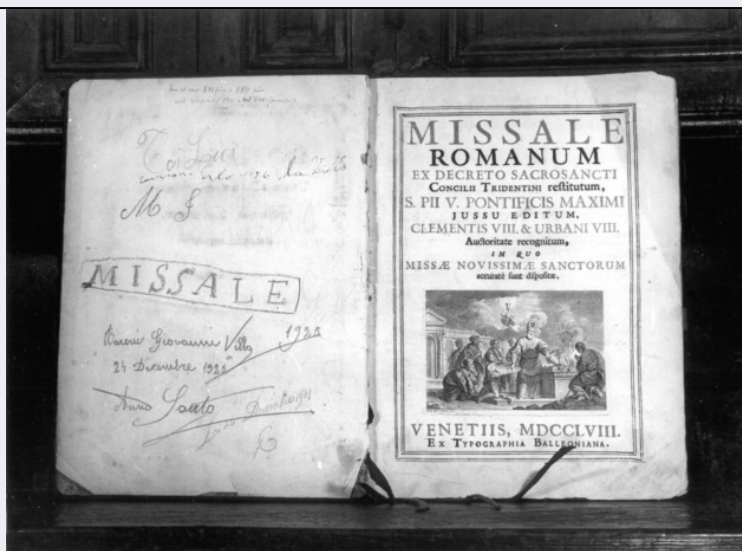 M S
MISSALE
Baroni Giovanni Villa 1925
24 Dicembre 1925
Anno Santo
MISSALE
ROMANUM
EX DECRETO SACROSANCTI
CONCILII TRIDENTINI restitutum,
S. PII V. PONTIFICIS MAXIMI
JUSSU EDITUM,
CLEMENTIS VIII. & URBANI VIII.
Auctoritate recognitum,
IN QUO
MISSÆ NOVISSIMÆ SANCTORUM
accuratè sunt dispositæ.
VENETIIS, MDCCLVIII.
EX TYPOGRAPHIA BALLEONIANA.